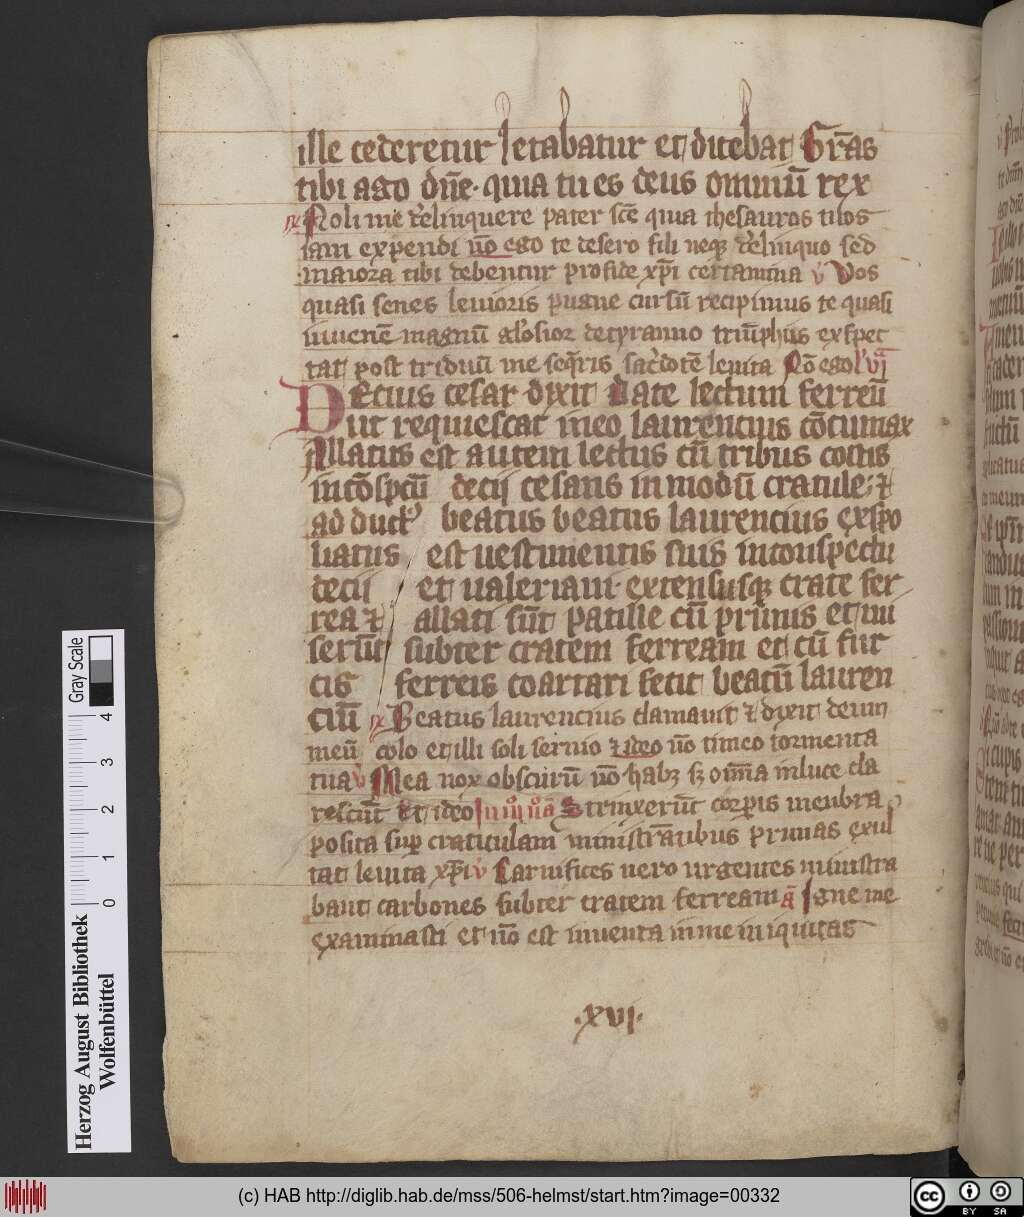 ille cederetur letabatur et dicebat Gr̄as
tibi ago dn̄e · quia tu es deus omniū rex
Noli me derelinquere pater sc̄e quia thesauros tuos
iam expendi nō ego te desero fili neqȝ derelinquo sed
maiora tibi debentur pro fide xp̄i certamina v̓ Nos
quasi senes leuioris pugne cursū recipimus te quasi
iuuenē magnū gl̓osior de tyranno triūphus exspec
tat post triduū me seq̄ris sac̓dotē leuita Nō ego l̓ vi
Decius cesar dixit Date lectum ferreū
ut requiescat in eo laurencius cōtumax
Allatus est autem lectus cū tribus costis
in cōspcū decij cesaris in modū cratule· ⁊
adduct᷒ beatus beatus laurencius expo
liatus est uestimentis suis in conspectu
decij et ualeriani· extensusqȝ crate fer
rea ⁊ allati sūt patille cū prunis et mi
serūt subter cratem ferream et cū fur
cis ferreis coartari fecit beatū lauren
ciū Beatus laurencius clamauit ⁊ dixit deum
meū colo et illi soli seruio ⁊ ideo nō timeo tormenta
tua v̓ Mea nox obscurū nō habȝ sȝ om̄a in luce cla
rescūt Et ideo Strinxerūt corpis menbra
posita sup̄ craticulam ministrātibus prunas exul
tat leuita xp̄i v̓ Carnifices uero urgentes ministra
bant carbones subter cratem ferream ā Igne me
examinasti et nō est inuenta in me iniquitas
·xvi·
Herzog August Bibliothek
Wolfenbüttel
0 1 2 3 4
Gray Scale
(c) HAB http://diglib.hab.de/mss/506-helmst/start.htm?image=00332
cc BY SA